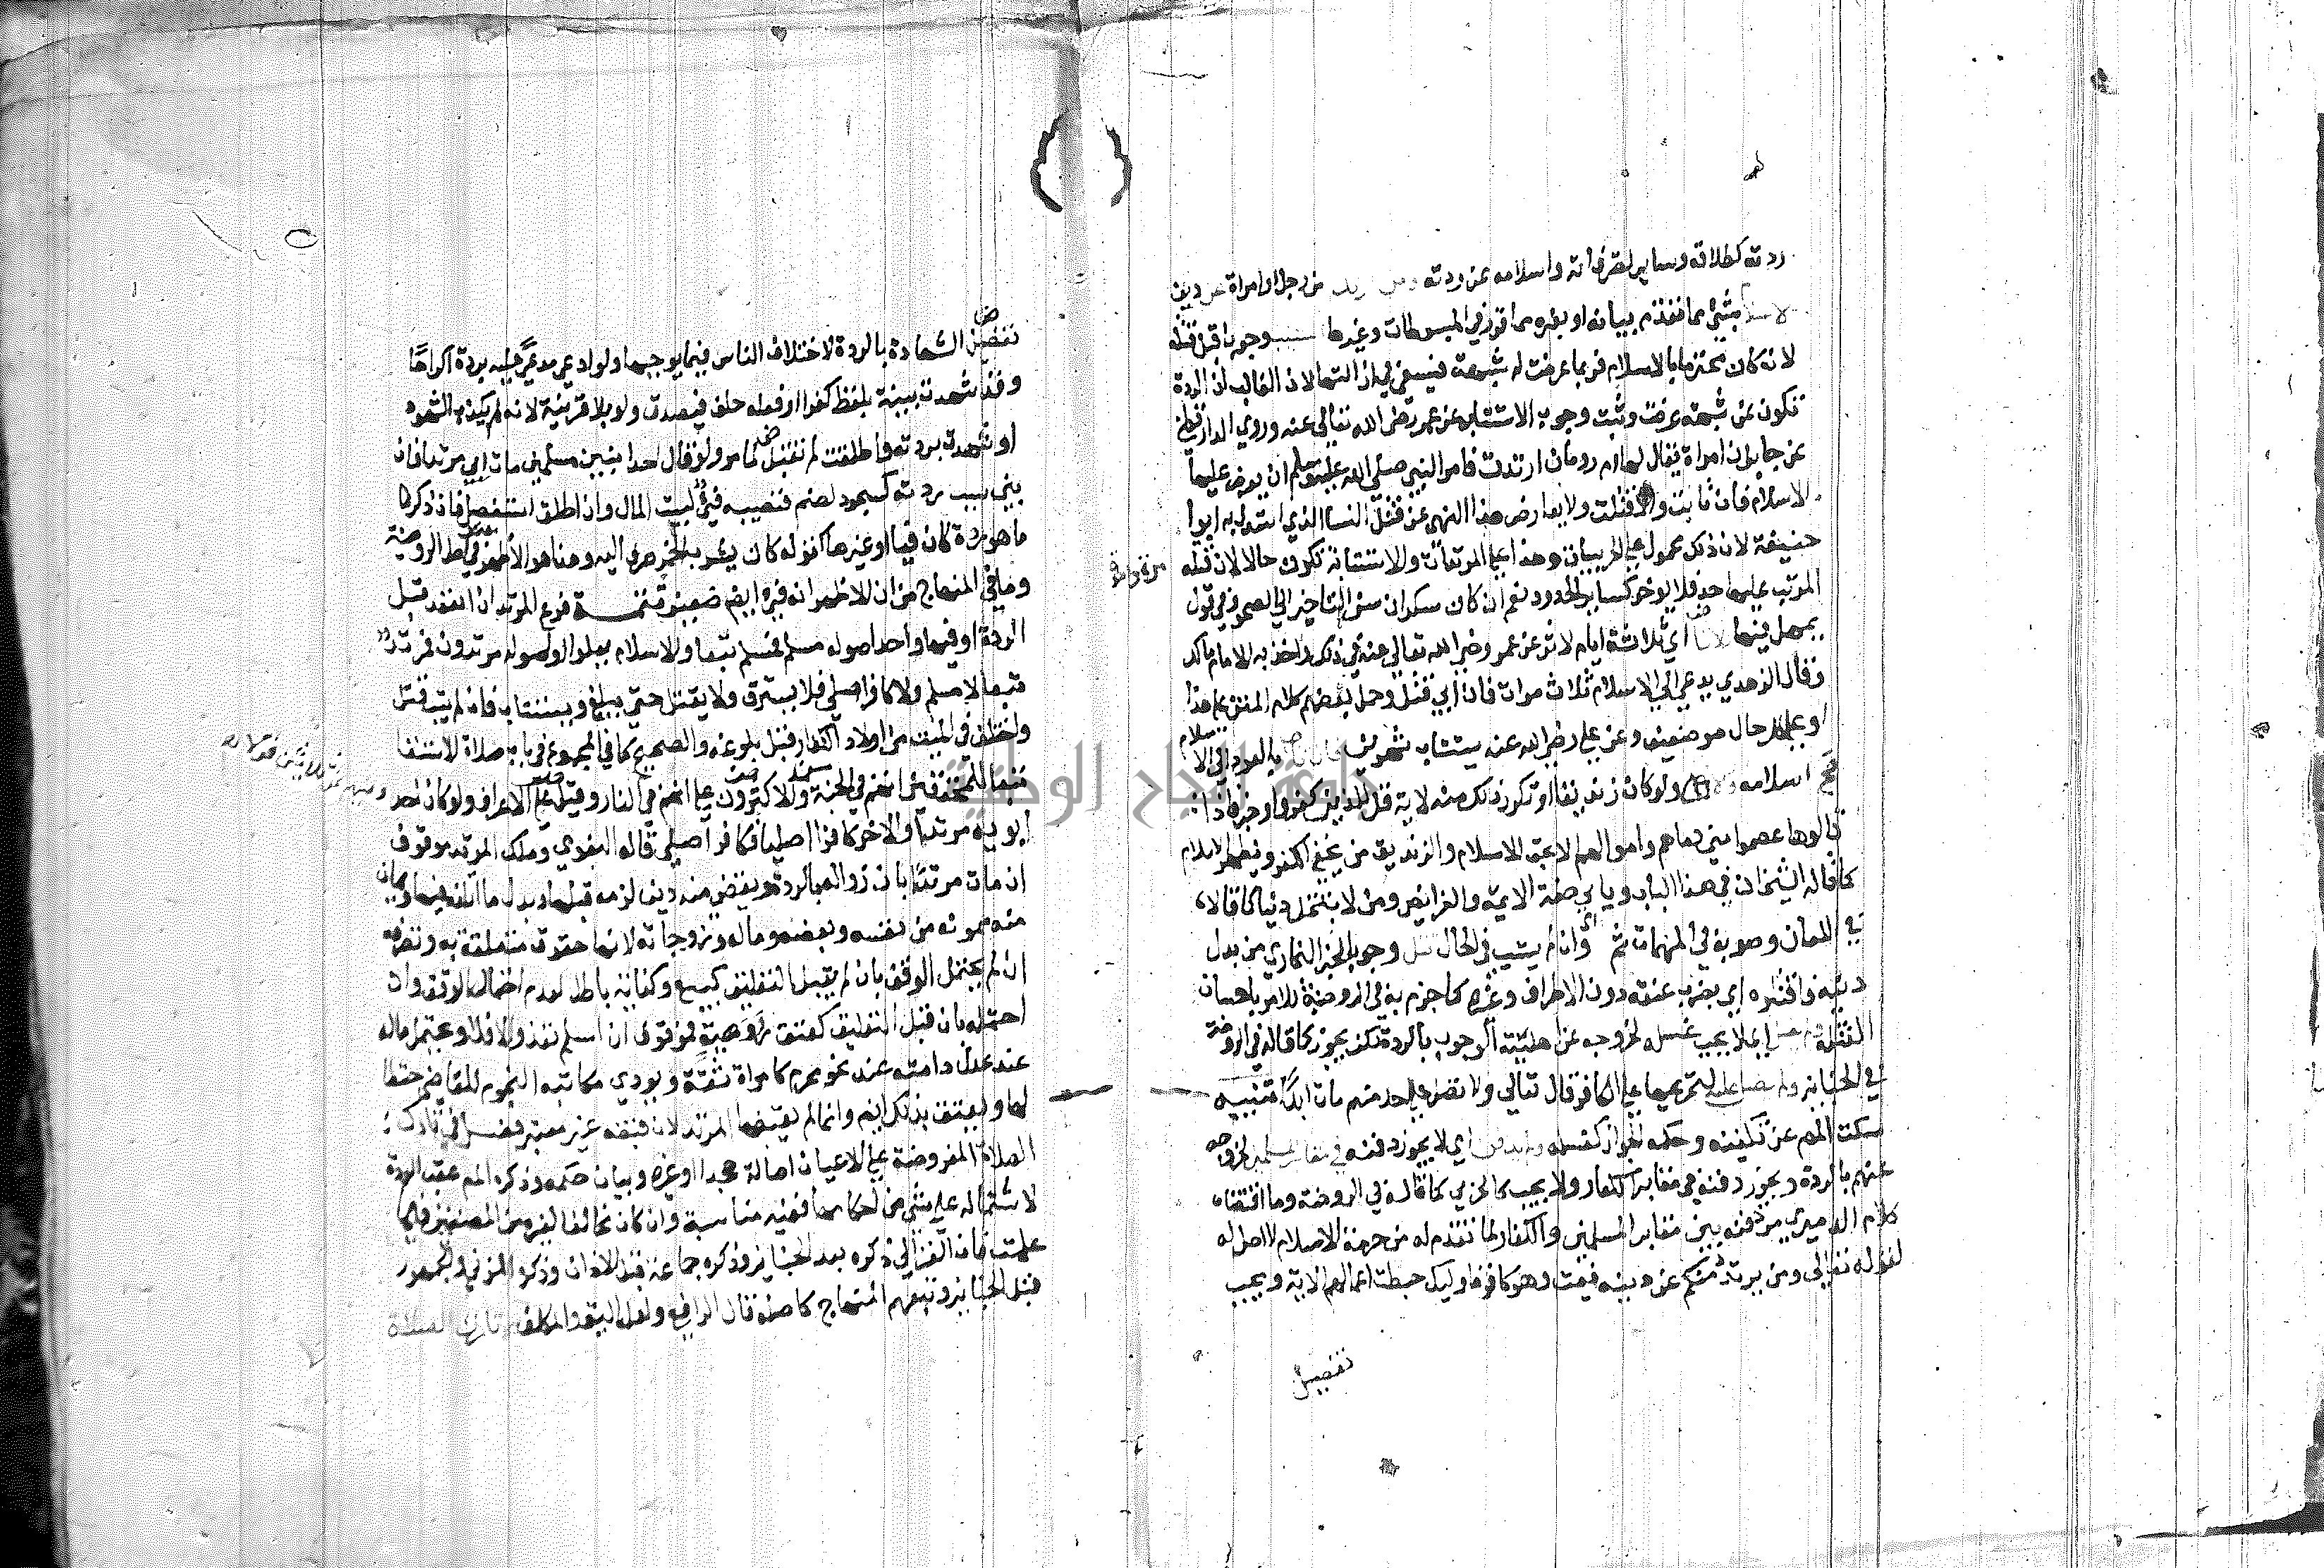 ردته كطلاقه وساير تصرفاته واسلامه عن ردته ومن من رجل او امراة عن دين
الاسلام بشي مما تقدم بيانه او بغيره مما قرر في المبسوطات وغيرها وجوبا قبل قتله
لانه كان محترما بالاسلام فربما عرضت له شبهة فيسعى في ازالتها لان الغالب ان الردة
تكون عن شبهة عرضت وثبت وجوب الاستتابة عن عمر رضي الله تعالى عنه وروي الدارقطني
عن جابر ان امراة يقال لها ام رومان ارتدت فامر النبي صلى الله عليه وسلم ان يعرض عليها
الاسلام فان تابت والا قتلت ولا يعارض هذا النهي عن قتل النسا الذي استدل به ابوا
حنيفة لان ذلك محمول على الحربيات وهذا على المرتدات والاستتابة تكون حالا لان قتله
المرتب عليها حد فلا يوخر كساير الحدود نعم ان كان سكران سن التاخير الى الصحو وفي قول
يمهل فيها اي ثلاثة ايام لاثر عن عمر رضي الله تعالى عنه في ذلك واخذ به الامام مالك
وقال الزهدي يدعى الى الاسلام ثلاث مرات فان ابى قتل وحمل بعضهم كلام المتن على هذا
وعلى كل حال هو ضعيف وعن علي رضي الله عنه يستتاب شهرين فان تاب بالعود الى الاسلام
صح اسلامه ولو كان زنديقا او تكرر ذلك منه لاية قل للذين كفروا وخبر فاذا
قالوها عصموا مني دماهم واموالهم الا بحق الاسلام والزنديق من يخفي الكفر ويظهر الاسلام
كما قاله الشيخان في هذا الباب وبابي صفة الايمة والفرايض ومن لا ينتحل دينا كما قالاه
في اللعان وصوبه في المهمات ثم اي وان لم يتب في الحال قتل وجوبا لخبر البخاري من بدل
دينه فاقتلوه اي بضرب عنقه دون الاحراق وغيره كما جزم به في الروضة للامر باحسان
القتلة اي لا يجب غسله لخروجه عن اهلية الوجوب بالردة لكن يجوز كما قاله في الروضة
في الجنايز ولم يصل عليه لتحريمها على الكافر قال تعالى ولا تصل على احد منهم مات ابدا تنبيه
سكت المص عن تكفينه وحكمه الجواز كغسله ولم يدفن اي لا يجوز دفنه في مقابر المسلمين لخروجه
عنهم بالردة ويجوز دفنه في مقابر الكفار ولا يجب كالحربي كما قاله في الروضة وما اقتضاه
كلام الدميري من دفنه بين مقابر المسلمين والكفار لما تقدم له من حرمة الاسلام لا اصل له
لقوله تعالى ومن يرتدد منكم عن دينه فيمت وهو كافر فاوليك حبطت اعمالهم الاية ويجب
تفصيل
تفصيل الشهادة بالردة لاختلاف الناس فيما يوجبها ولو ادعى مدعى عليه بردة اكراها
وقد شهدت بينة بلفظ كفر او فعله حلف فيصدق ولو بلا قرينة لانه لم يكذب الشهود
او شهدت بردته واطلقت لم تقبل لما مر ولو قال احد ابنين مسلمين مات ابي مرتدا فان
بين سبب ردته كسجود لصنم فنصيبه فيء لبيت المال وان اطلق استفصل فان ذكر
ما هو ردة كان فيا او غيرها كقوله كان يشرب الخمر صرف اليه وهذا هو الاظهر في اصل الروضة
وما في المنهاج من ان الاظهر انه فيء ايضا ضعيف تتمة فرع المرتد ان انعقد قبل
الردة او فيها واحد اصوله مسلم فمسلم تبعا والاسلام يعلوا او اصوله مرتدون فمرتد
تبعا لا مسلم ولا كافر اصلي فلا يسترق ولا يقتل حتى يبلغ ويستتاب فان لم يتب قتل
واختلف في الميت من اولاد الكفار قبل بلوغه والصحيح كما في المجموع في باب صلاة الاستسقا
تبعا للمحققين انهم في الجنة والاكثرون على انهم في النار وقيل على الاعراف ولو كان احد
ابويه مرتدا والاخر كافرا اصليا فكافر اصلي قاله البغوي وملك المرتد موقوف
ان مات مرتدا بان زواله بالردة ويقضي منه دين لزمه قبلها وبدل ما اتلفه فيها ويمان
منه ممونه من نفسه وبعضه وماله وزوجاته لانها حقوق متعلقة به وتصرفه
ان لم يحتمل الوقف بان لم يقبل التعليق كبيع وكتابة باطل لعدم احتمال الوقف وان
احتمله بان قبل التعليق كعتق ووصية فموقوف ان اسلم نفذ والا فلا ويجعل ماله
عند عدل وامته عند نحو محرم كامراة ثقة ويودي مكاتبه النجوم للقاضي حفظا
لها ويعتق بذلك ايضا وانما لم يقبضها المرتد لان قبضه غير معتبر فصل في تارك
الصلاة المفروضة على الاعيان اصالة جحدا او غيره وبيان حكمه وذكره المص عقب الردة
لاشتماله على شي من احكامها ففيه مناسبة وان كان مخالفا لغيره من المصنفين فيما
علمت فان الغزالي ذكره بعد الجنايز وذكره جماعة قبل الاذان وذكره المزني والجمهور
قبل الجنايز وتبعهم المنهاج كاصله قال الرافعي ولعله اليق والمكلف تارك الصلاة